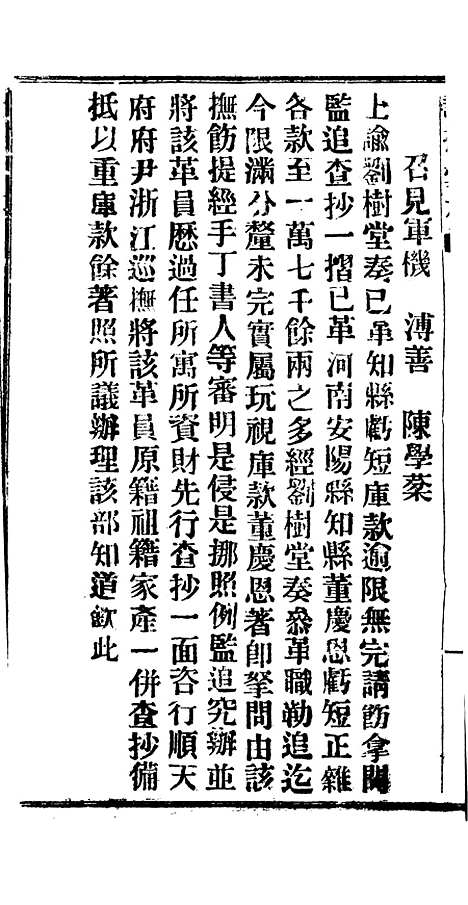 召見軍機　溥善　陳學棻
上諭劉樹堂奏已革知縣虧短庫款逾限無完請飭拿問
監追查抄一摺已革河南安陽縣知縣董慶恩虧短正雜
各款至一萬七千餘兩之多經劉樹堂奏叅革職勒追迄
今限滿分釐未完實屬玩視庫款董慶恩著卽拏問由該
撫飭提經手丁書人等審明是侵是挪照例監追究辦並
將該革員歷過任所寓所資財先行查抄一面咨行順天
府府尹浙江巡撫將該革員原籍祖籍家產一併查抄備
抵以重庫款餘著照所議辦理該部知道欽此